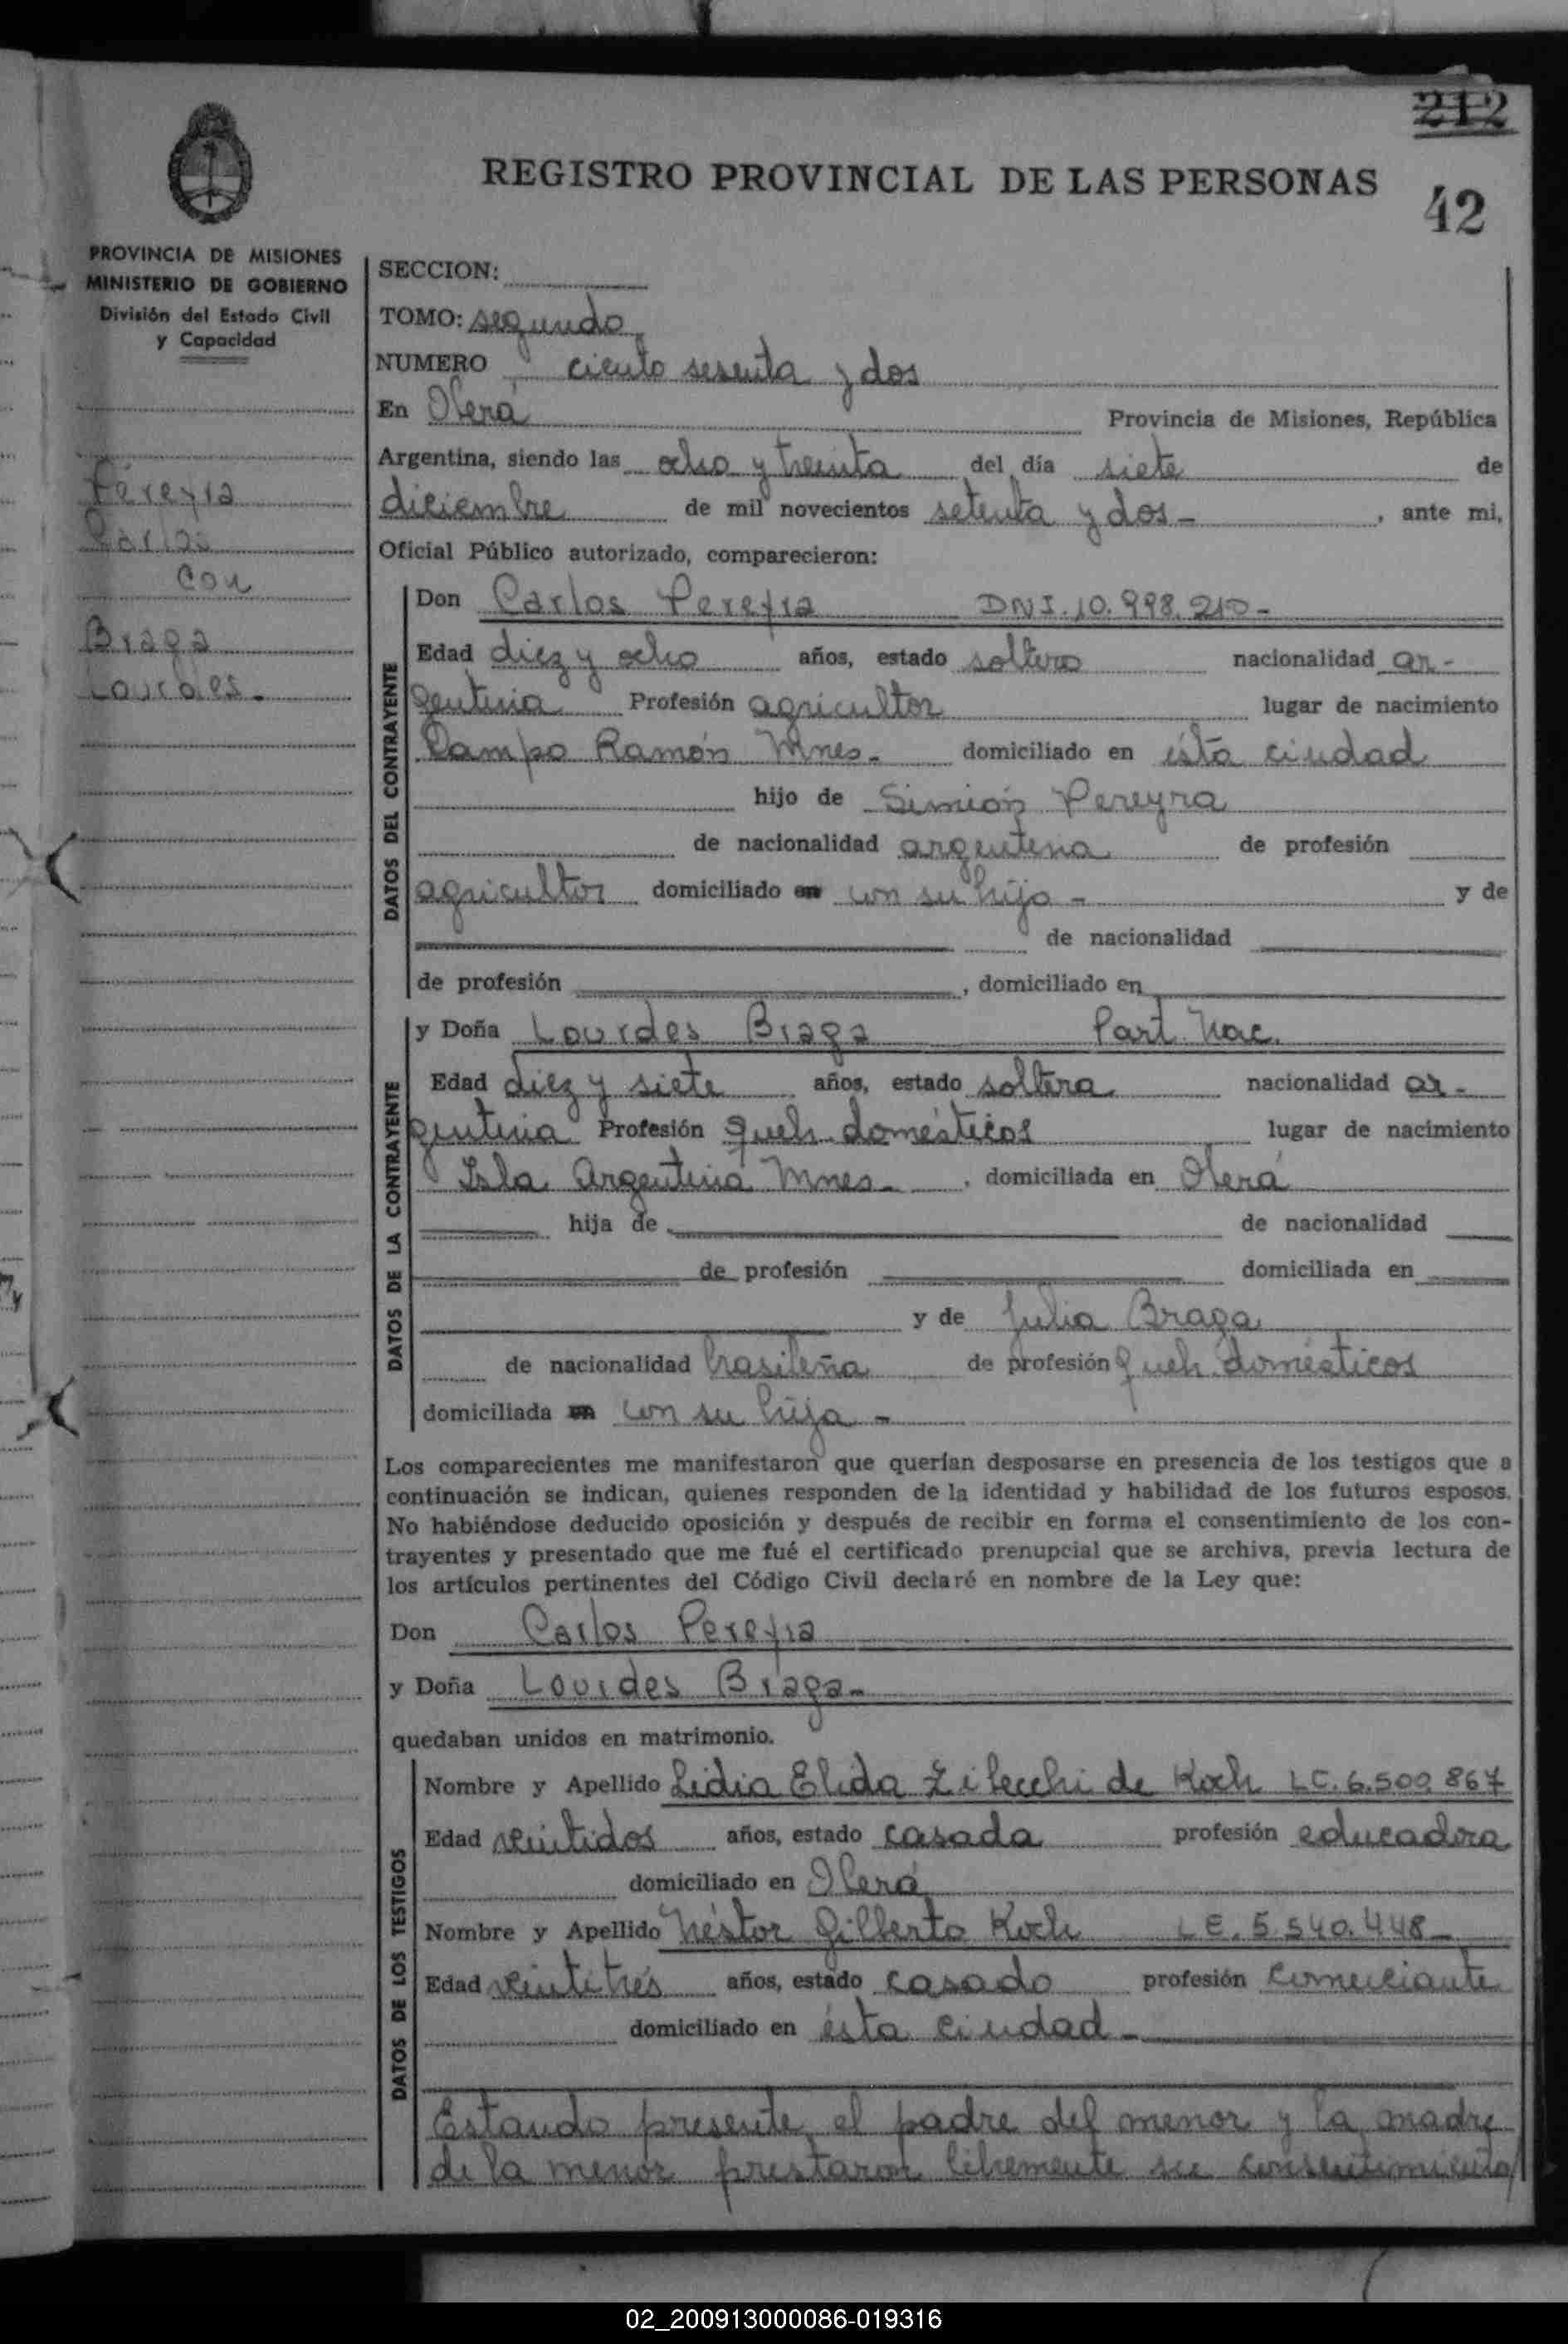 212
REGISTRO PROVINCIAL DE LAS PERSONAS
42
PROVINCIA DE MISIONES
MINISTERIO DE GOBIERNO
División del Estado Civil
y Capacidad
Pereyra
Carlos
con
Braga
Lourdes.
SECCION:
TOMO: segundo
NUMERO ciento sesenta y dos
En Oberá Provincia de Misiones, República
Argentina, siendo las ocho y treinta del día siete de
diciembre de mil novecientos setenta y dos - , ante mi,
Oficial Público autorizado, comparecieron:
DATOS DEL CONTRAYENTE
Don Carlos Pereyra DNI. 10.998.210-
Edad diez y ocho años, estado soltero nacionalidad ar-
gentina Profesión agricultor lugar de nacimiento
Campo Ramón Mnes. domiciliado en ésta ciudad
hijo de Simión Pereyra
de nacionalidad argentina de profesión
agricultor domiciliado en con su hijo - y de
de nacionalidad
de profesión , domiciliado en
DATOS DE LA CONTRAYENTE
y Doña Lourdes Braga Part. Nac.
Edad diez y siete años, estado soltera nacionalidad ar-
gentina Profesión queh. domésticos lugar de nacimiento
Isla Argentina Mnes. , domiciliada en Oberá
hija de de nacionalidad
de profesión domiciliada en
y de Julia Braga
de nacionalidad brasileña de profesión queh. domésticos
domiciliada en con su hija -
Los comparecientes me manifestaron que querían desposarse en presencia de los testigos que a
continuación se indican, quienes responden de la identidad y habilidad de los futuros esposos.
No habiéndose deducido oposición y después de recibir en forma el consentimiento de los con-
trayentes y presentado que me fué el certificado prenupcial que se archiva, previa lectura de
los artículos pertinentes del Código Civil declaré en nombre de la Ley que:
Don Carlos Pereyra
y Doña Lourdes Braga-
quedaban unidos en matrimonio.
DATOS DE LOS TESTIGOS
Nombre y Apellido Lidia Elida Zilecchi de Koch LC. 6.500.867
Edad veintidos años, estado casada profesión educadora
domiciliado en Oberá
Nombre y Apellido Néstor Gilberto Koch LE. 5.540.448-
Edad veintitrés años, estado casado profesión comerciante
domiciliado en ésta ciudad -
Estando presente el padre del menor y la madre
de la menor prestaron libremente su consentimiento/
02_200913000086-019316